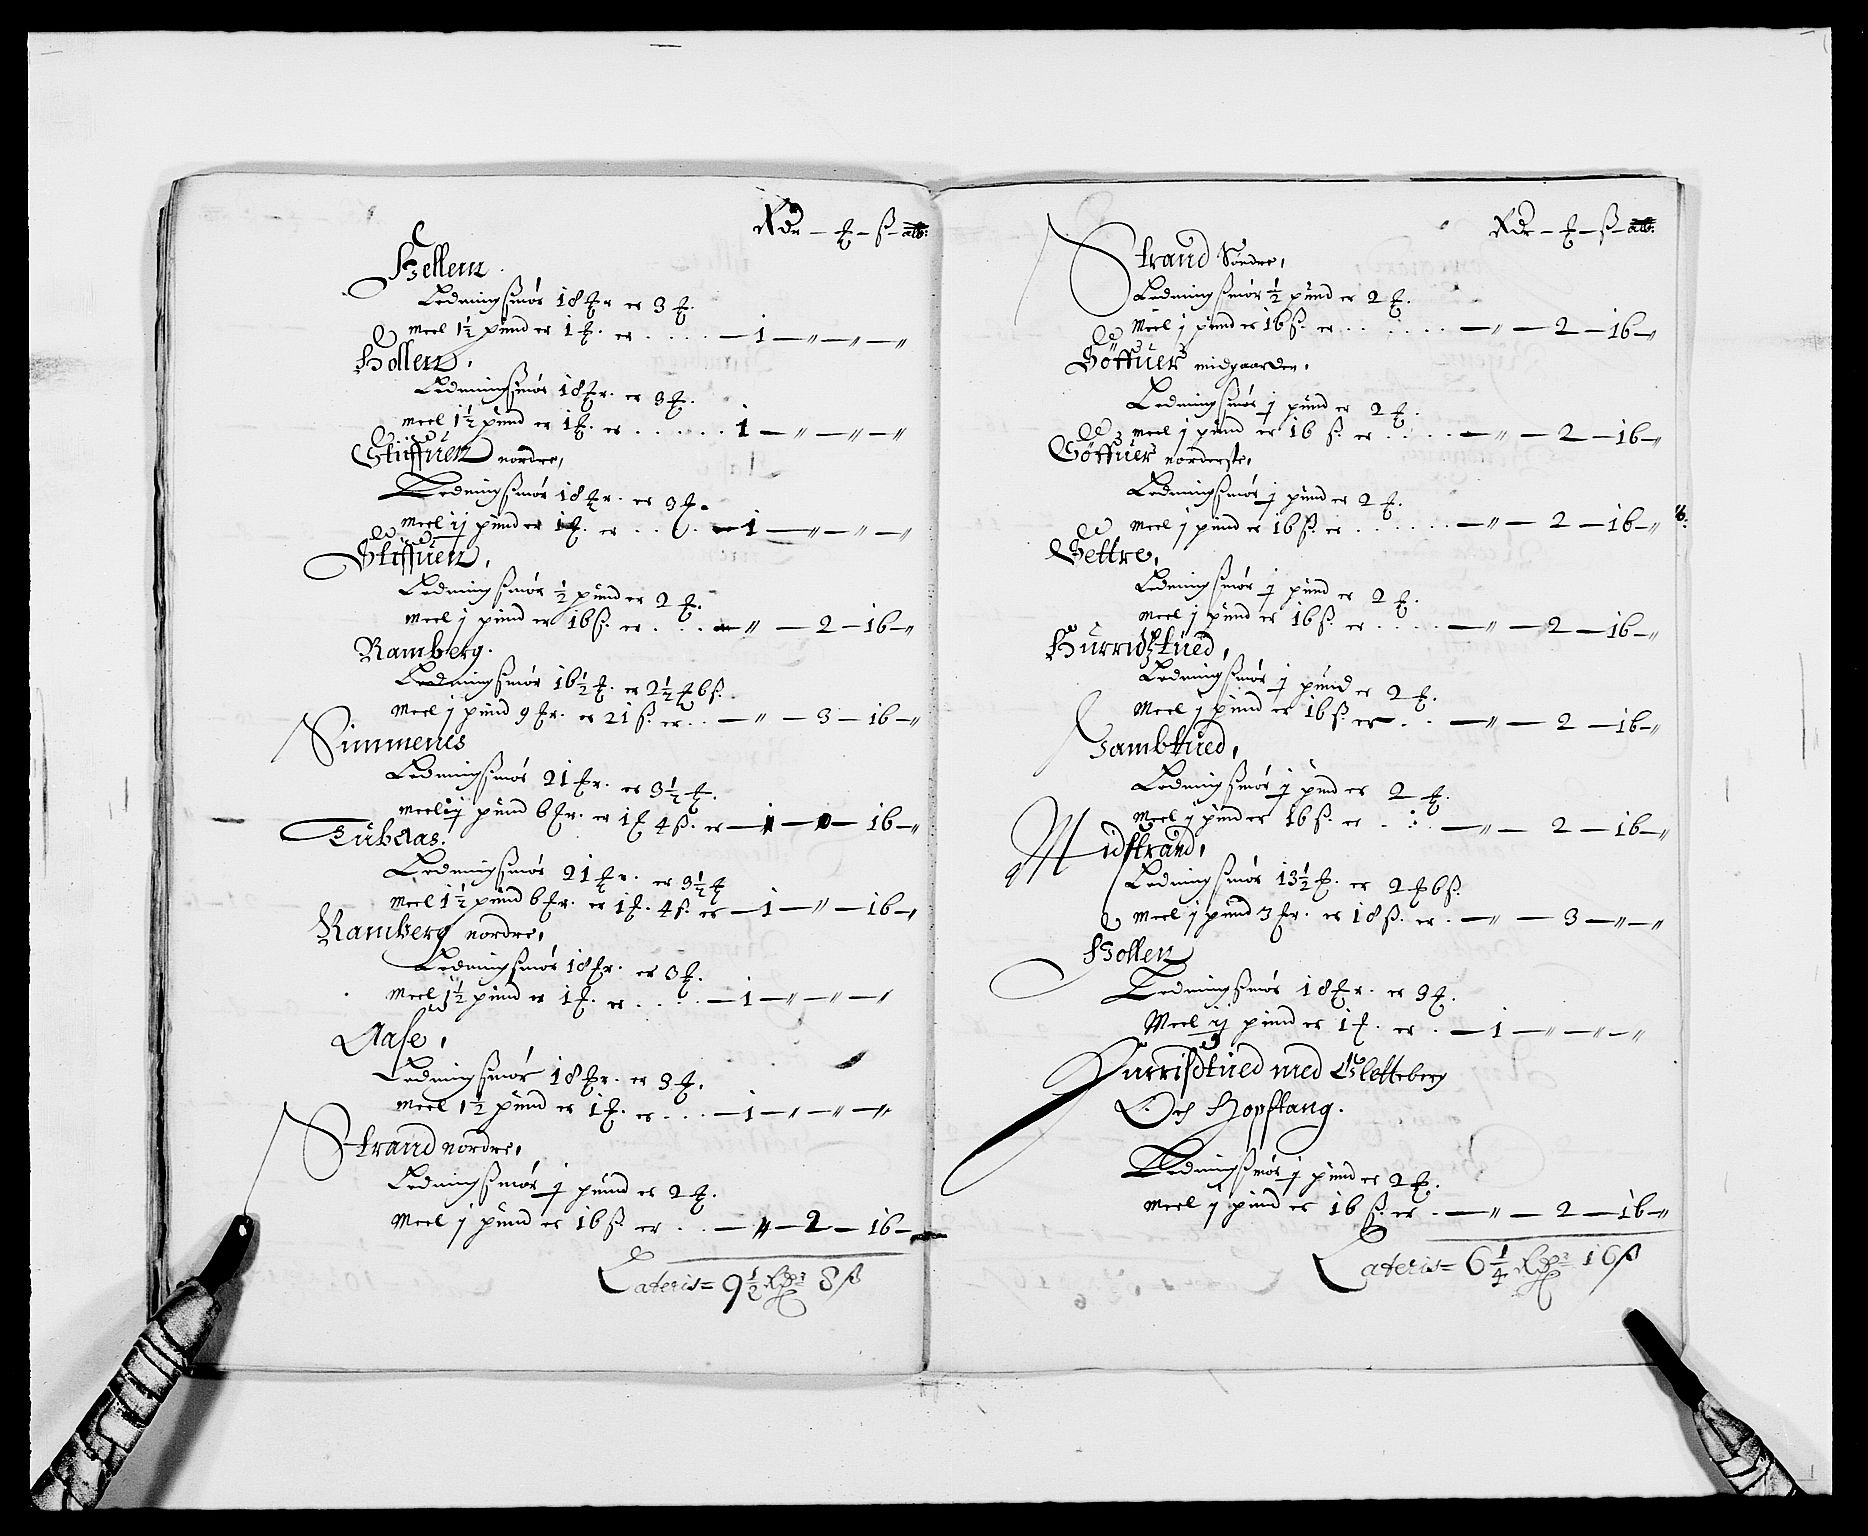 Rdr – ℔ – ß – alb:
Hellem
Ledningsmør 18 ℔r er 3 ℔.
Meel 1½ pund er 1 ℔. er . . . . – 1 – " – " – "
Hollem,
Ledningsmør 18 ℔r. er 3 ℔.
meel 1½ pund er 1 ℔. er . . . . . 1 – " – " – "
Stüffuen nordre,
Ledningsmør 18 ℔r. er 3 ℔.
meel ij pund er 1 ℔. er . . . – 1 – " – " – "
Stiffuen,
Ledningsmør ½ pund er 2 ℔.
meel j pund er 16 ß. er . . . – " – 2 – 16 – "
Ramberg.
Ledningsmør 16½ ℔. er 2½ ℔ 6 ß.
Meel j pund 9 ℔r. er 21 ß. er . . – " – 3 – 16 – "
Simmenes
Ledningsmør 21 ℔r. er 3½ ℔.
meel ij pund 6 ℔r. er 1 ℔ 4 ß. er – 1 – 0 – 16 – "
Tubelaas.
Ledningsmør 21 ℔r. er 3½ ℔
Meel 1½ pund 6 ℔r. er 1 ℔. 4 ß. er – 1 – " – 16 – "
Ramberg nordre,
Ledningsmør 18 ℔r. er 3 ℔.
Meel 1½ pund er 1 ℔. er . . . . – 1 – " – " – "
Aase,
Ledningsmør 18 ℔r. er 3 ℔.
Meel 1½ pund er 1 ℔. er . . . – 1 – " – " – "
Strand nordre,
Ledningsmør j pund er 2 ℔.
Meel j pund er 16 ß. er . . – " – 2 – 16 –
Lateris = 9½ Rdr 8 ß
Rdr – ℔ – ß – alb:
Strand Søndre,
Ledningsmør ½ pund er 2 ℔.
Meel j pund er 16 ß. er . . . . . . – " – 2 – 16 – "
Göttuer midgaarden,
Ledningsmør j pund er 2 ℔.
meel j pund er 16 ß. er . . . . – " – 2 – 16 – "
Göttuer norderste,
Ledningsmør j pund er 2 ℔.
meel j pund er 16 ß. er . . . . . – " – 2 – 16 – "
Gettre,
Ledningsmør j pund er 2 ℔.
meel j pund er 16 ß. er . . . . – " – 2 – 16 – "
Hurridztued,
Ledningsmør j pund er 2 ℔.
Meel j pund er 16 ß. er . . – " – 2 – 16 – "
Gambtued,
Ledningsmør j pund er 2 ℔.
Meel j pund er 16 ß. er . . . – " – 2 – 16 – "
Midstrand,
Ledningsmør 13½ ℔. er 2 ℔ 6 ß.
Meel j pund 3 ℔r. er 18 ß. er . – " – 3 – " – "
Hollen
Ledningsmør 18 ℔r. er 3 ℔.
Meel ij pund er 1 ℔. er . – 1 – " – " – "
Hurrisdtued med Gletteberg
Och Hopstang.
Ledningsmør j pund er 2 ℔.
Meel j pund er 16 ß. er . – " – 2 – 16 – "
Lateris = 6¼ Rdr 16 ß